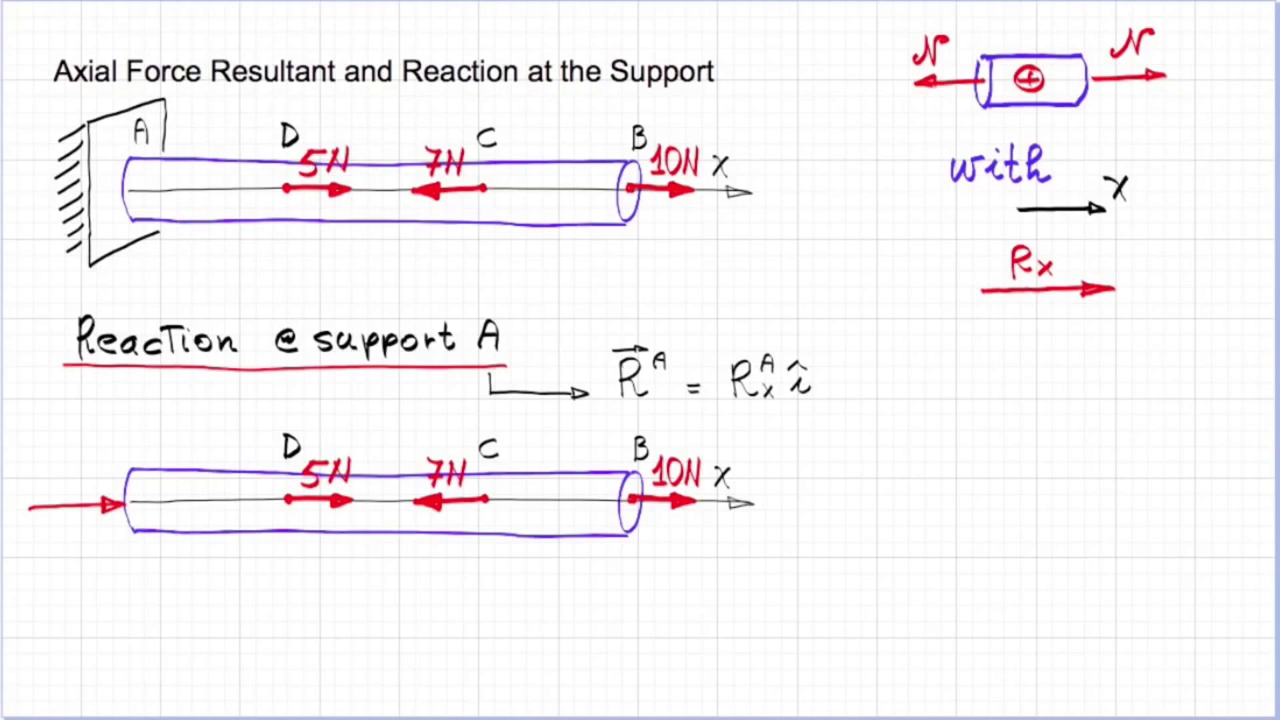 Axial Force Resultant and Reaction at the Support
N + N
A D 5N 7N C B 10N x
with
x
Rx
Reaction @ support A
R^A = R_x^A î
D 5N 7N C B 10N x